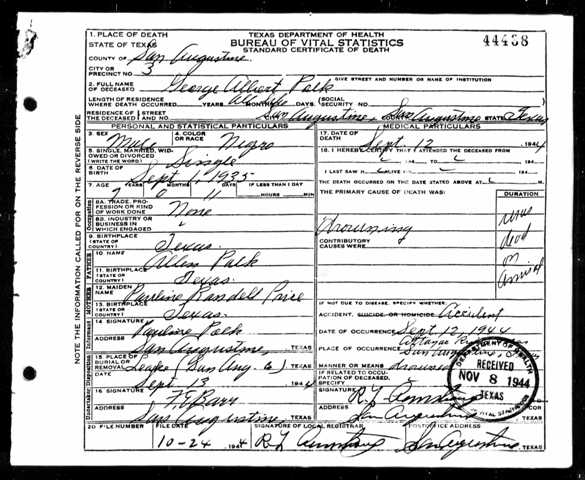 TEXAS DEPARTMENT OF HEALTH
BUREAU OF VITAL STATISTICS
STANDARD CERTIFICATE OF DEATH
44438
1. PLACE OF DEATH
STATE OF TEXAS
COUNTY OF San Augustine
CITY OR PRECINCT NO. 3
GIVE STREET AND NUMBER OR NAME OF INSTITUTION
2. FULL NAME OF DECEASED George Albert Polk
LENGTH OF RESIDENCE WHERE DEATH OCCURRED YEARS MONTHS All life
SOCIAL SECURITY NO.
RESIDENCE OF THE DECEASED STREET AND NO. San Augustine, San Augustine STATE Texas
PERSONAL AND STATISTICAL PARTICULARS
3. SEX Male
4. COLOR OR RACE Negro
5. SINGLE, MARRIED, WIDOWED OR DIVORCED (WRITE THE WORD) Single
6. DATE OF BIRTH Sept 1, 1935
7. AGE YEARS MONTHS DAYS IF LESS THAN 1 DAY
9 0 11 HOURS MIN
8A. TRADE, PROFESSION OR KIND OF WORK DONE None
8B. INDUSTRY OR BUSINESS IN WHICH ENGAGED
9. BIRTHPLACE (STATE OR COUNTRY) Texas
10. NAME Allen Polk
11. BIRTHPLACE (STATE OR COUNTRY) Texas
12. MAIDEN NAME Pauline Randell Price
13. BIRTHPLACE (STATE OR COUNTRY) Texas
14. SIGNATURE Pauline Polk
ADDRESS San Augustine, TEXAS
15. PLACE OF BURIAL OR REMOVAL (San Aug. Co) TEXAS
Sept 13 1944
16. SIGNATURE
ADDRESS San Augustine, TEXAS
MEDICAL PARTICULARS
17. DATE OF DEATH Sept. 12, 1944
18. I HEREBY CERTIFY THAT I ATTENDED THE DECEASED FROM
194 TO 194
I LAST SAW H ALIVE ON 194
THE DEATH OCCURRED ON THE DATE STATED ABOVE AT M
THE PRIMARY CAUSE OF DEATH WAS:
DURATION
Drowning
was dead on arrival
CONTRIBUTORY CAUSES WERE
IF NOT DUE TO DISEASE, SPECIFY WHETHER:
ACCIDENT, SUICIDE OR HOMICIDE Accident
DATE OF OCCURRENCE Sept 12, 1944
PLACE OF OCCURRENCE
MANNER OR MEANS Drowned
IF RELATED TO OCCUPATION OF DECEASED, SPECIFY
SIGNATURE
ADDRESS San Augustine TEXAS
DEPARTMENT OF HEALTH
RECEIVED
NOV 8 1944
TEXAS
VITAL STATISTICS
20 FILE NUMBER FILE DATE SIGNATURE OF LOCAL REGISTRAR POSTOFFICE ADDRESS
10-24 1944 San Augustine TEXAS
NOTE THE INFORMATION CALLED FOR ON THE REVERSE SIDE